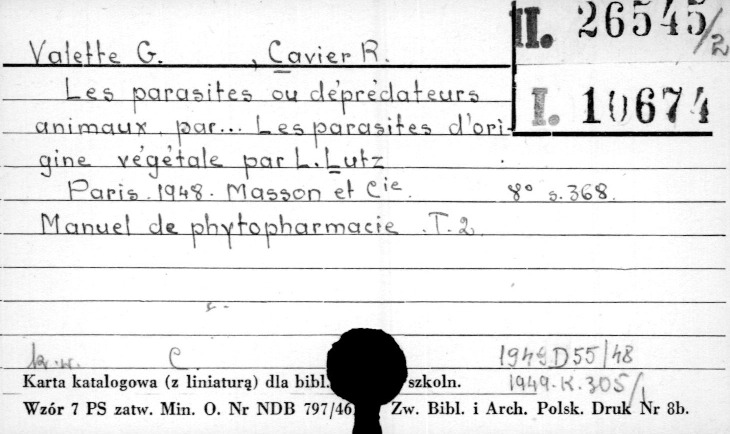 II. 26545/2
Valette G. , Cavier R.
I. 10674
Les parasites ou déprédateurs
animaux, par... Les parasites d'ori-
gine végétale par L. Lutz
Paris. 1948. Masson et Cie. 8° s. 368.
Manuel de phytopharmacie. T. 2
k.w. C 1949 D55/48
Karta katalogowa (z liniaturą) dla bibl. szkoln. 1949.K.305/1
Wzór 7 PS zatw. Min. O. Nr NDB 797/46. Zw. Bibl. i Arch. Polsk. Druk Nr 8b.